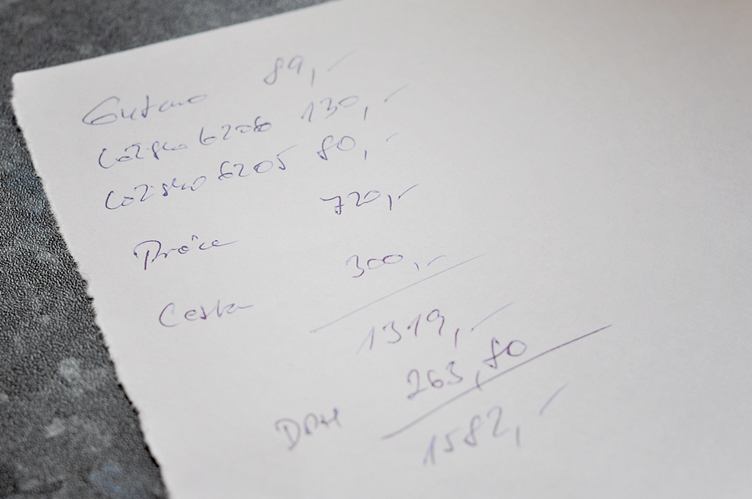 Gufero 89,-
Ložisko 6206 130,-
Ložisko 6205 80,-
Práce 720,-
Cesta 300,-
1319,-
DPH 263,80
1582,-